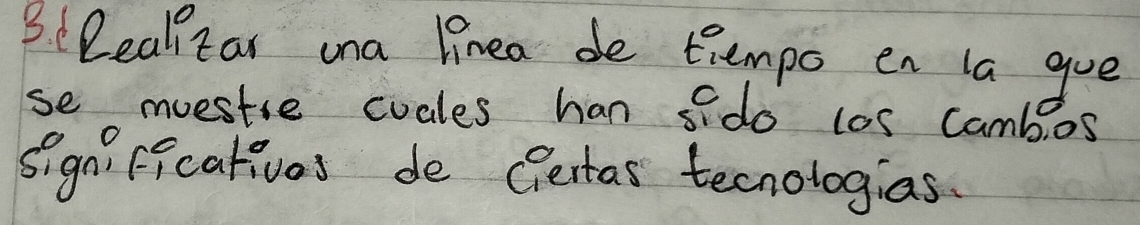 3. Realizar una linea de tiempo en la que
se muestre cuales han sido los cambios
significativos de ciertas tecnologias.